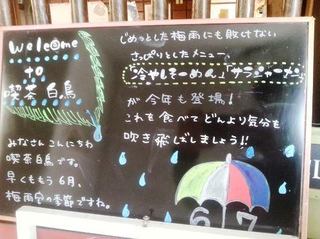 Welcome
to
喫茶 白鳥
みなさんこんにちわ
喫茶白鳥です。
早くももう6月、
梅雨の季節ですね。
じめっとした梅雨にも敗けない
さっぱりとしたメニュー、
「冷やしそーめん」「サラダそーめん」
が今年も登場！
これを食べてどんより気分も
吹き飛ばしましょう!!
6 7